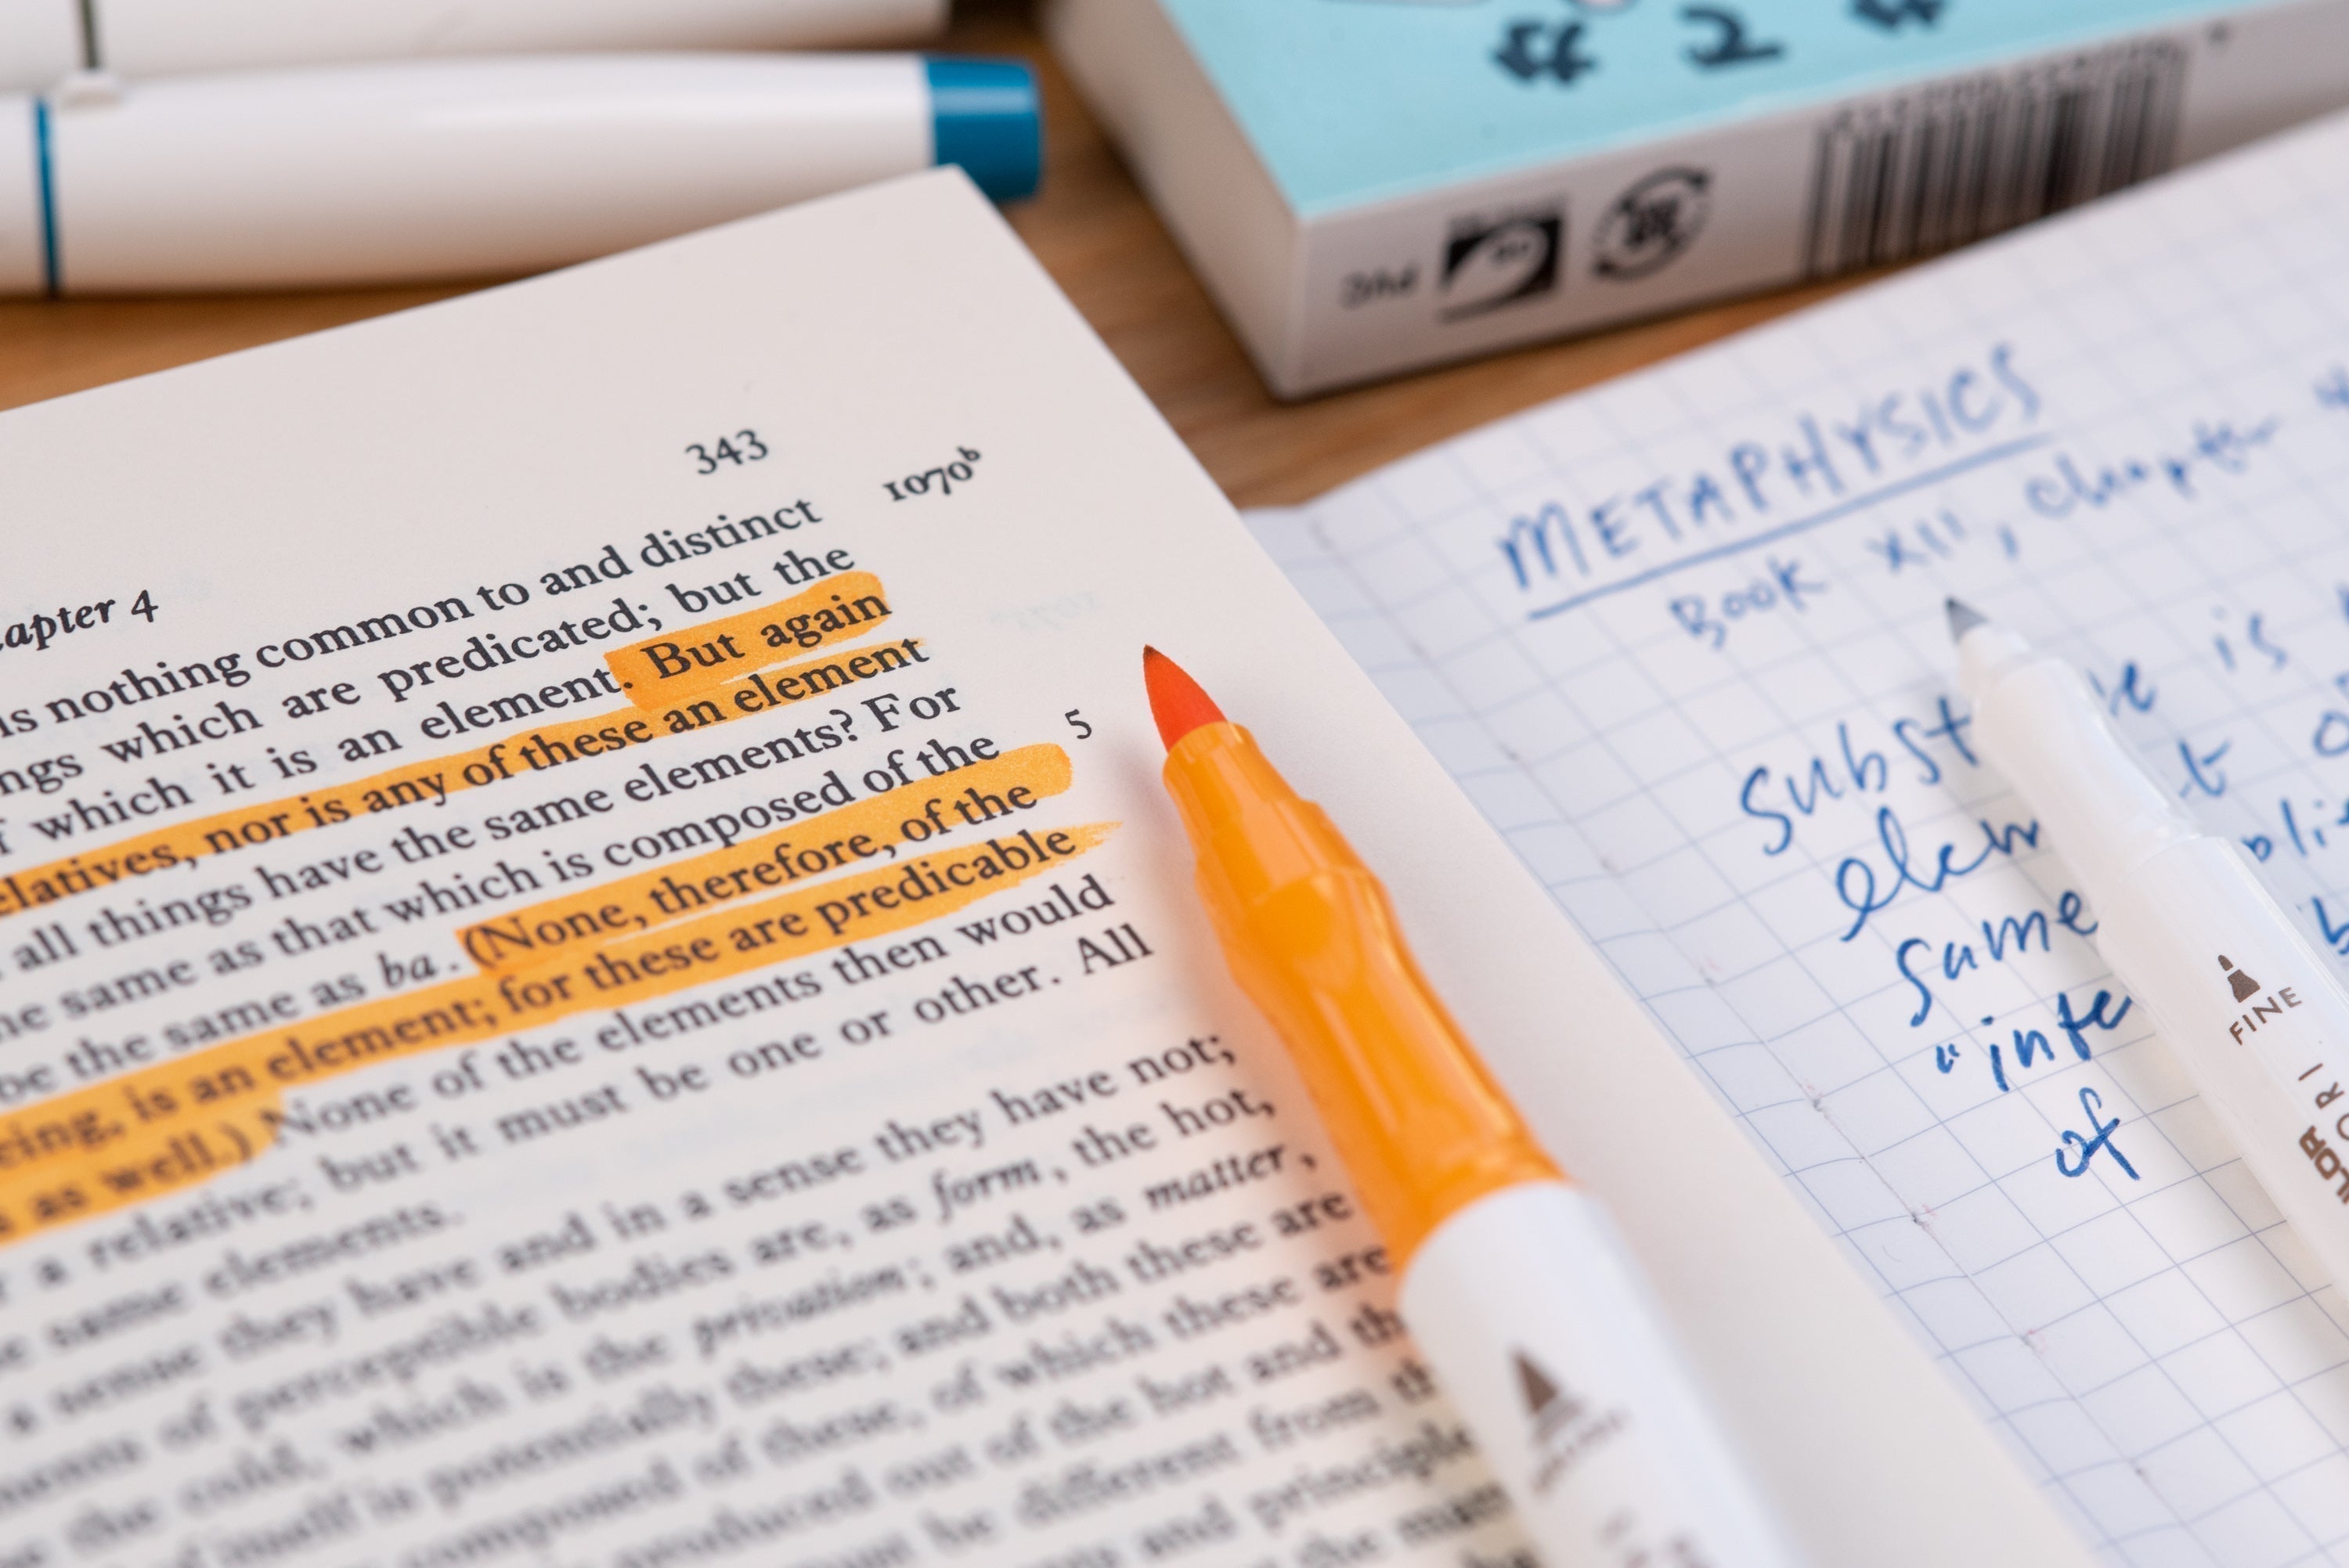 343
apter 4
1070ᵇ
is nothing common to and distinct
ngs which are predicated; but the
f which it is an element. But again
elatives, nor is any of these an element
all things have the same elements? For
5
he same as that which is composed of the
be the same as ba. (None, therefore, of the
eing, is an element; for these are predicable
as well.) None of the elements then would
r a relative; but it must be one or other. All
e same elements.
a sense they have and in a sense they have not;
ments of perceptible bodies are, as form, the hot,
the cold, which is the privation; and, as matter,
of itself is potentially these; and both these are
composed of these, of which these are
produced out of the hot and th
must be different from th
and principle
the
PVC
METAPHYSICS
Book XII, chapter 4
Subst e is
elem t
same
"inte
of
FINE